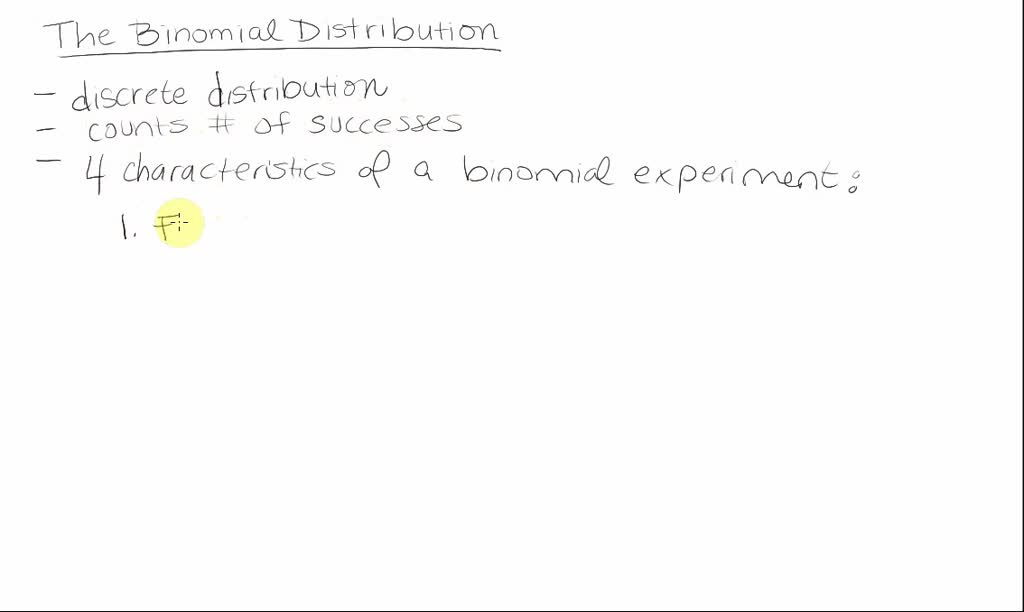 The Binomial Distribution
- discrete distribution
- counts # of successes
- 4 characteristics of a binomial experiment:
1. F